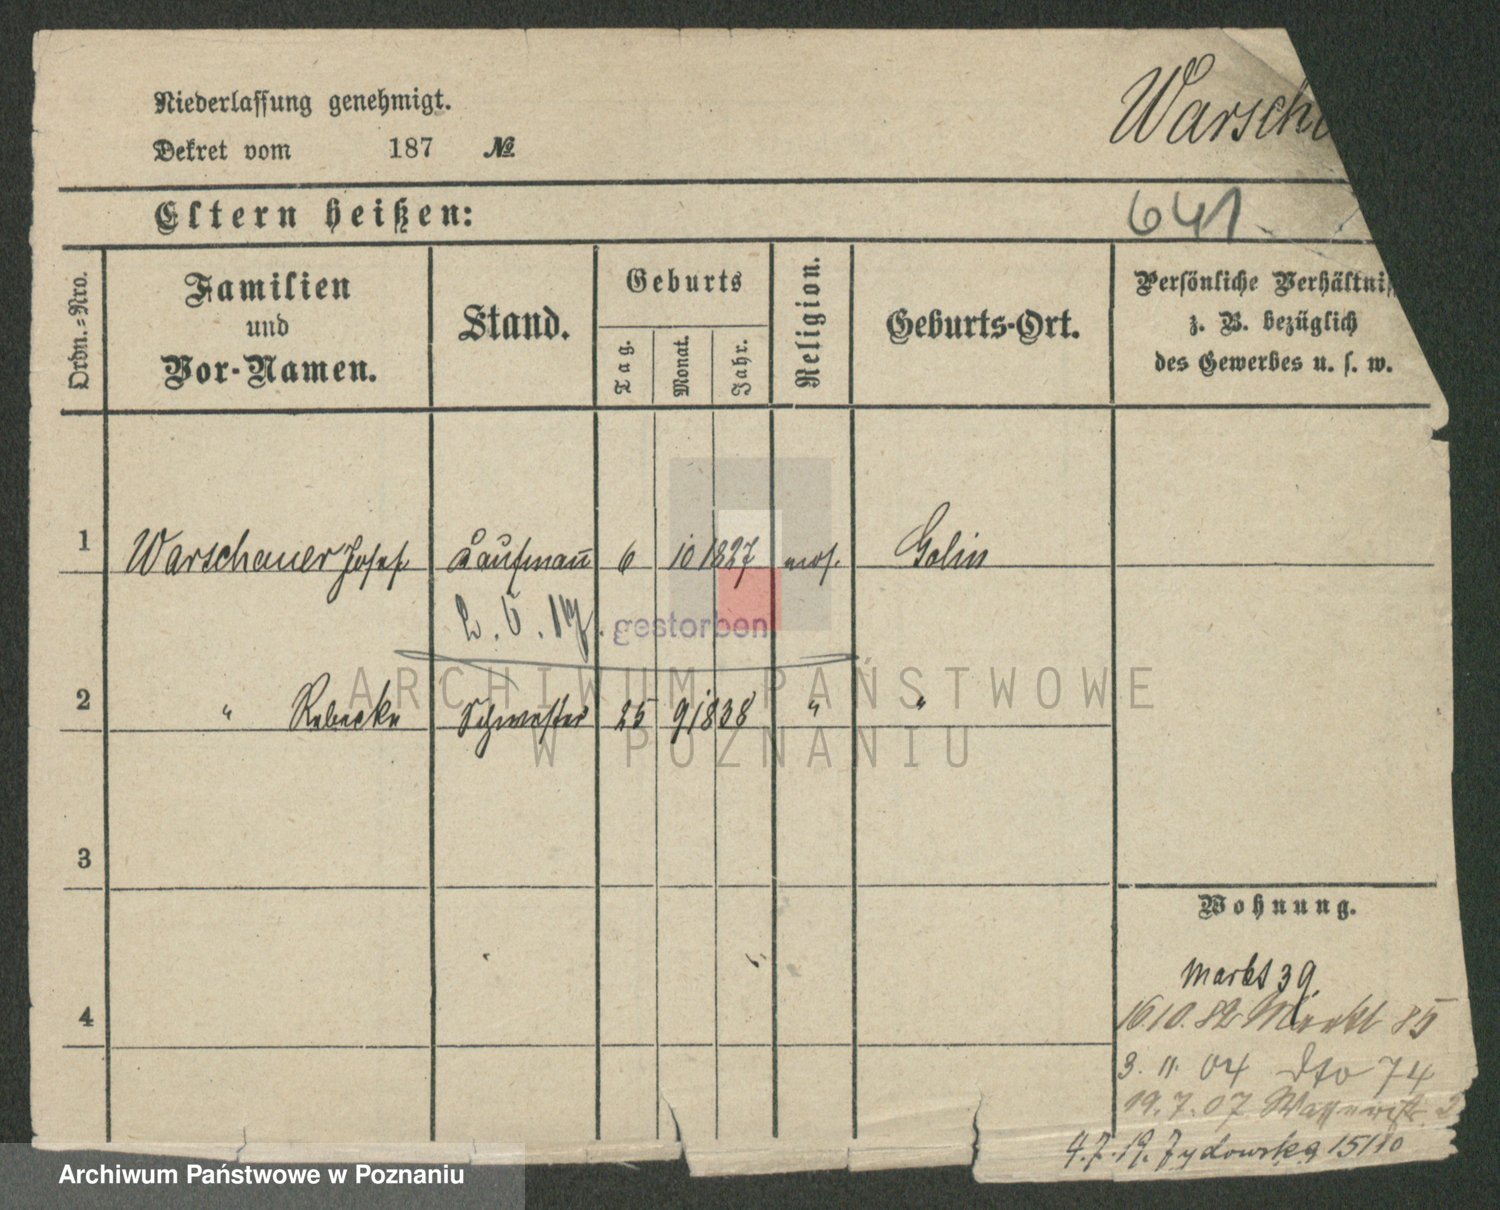 Niederlassung genehmigt.
Dekret vom 187 №
Warscha
641.
Eltern heißen:
Ordn.-Nro.
Familien
und
Vor-Namen.
Stand.
Geburts
Tag.
Monat.
Jahr.
Religion.
Geburts-Ort.
Persönliche Verhältnis
z. B. bezüglich
des Gewerbes u. s. w.
1 Warschauer Josef Kaufmann 6 10 1827 mos. Golin
2. 5. 17. gestorben
2 " Rebecke Schwester 25 9 1838 " "
3
Wohnung.
Markt 39.
4
16.10.82 Markt 85
3. 11. 04 dto 74
19.7.07 Wasserstr. 2
4.7.19. Żydowska 15/10
ARCHIWUM PAŃSTWOWE
W POZNANIU
Archiwum Państwowe w Poznaniu